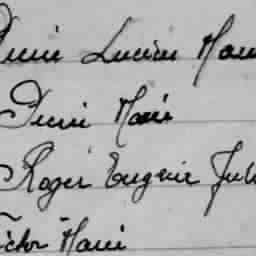 Denie Lucien Mari
Denié Marie
Roger Eugenie Juli
ictor Marie